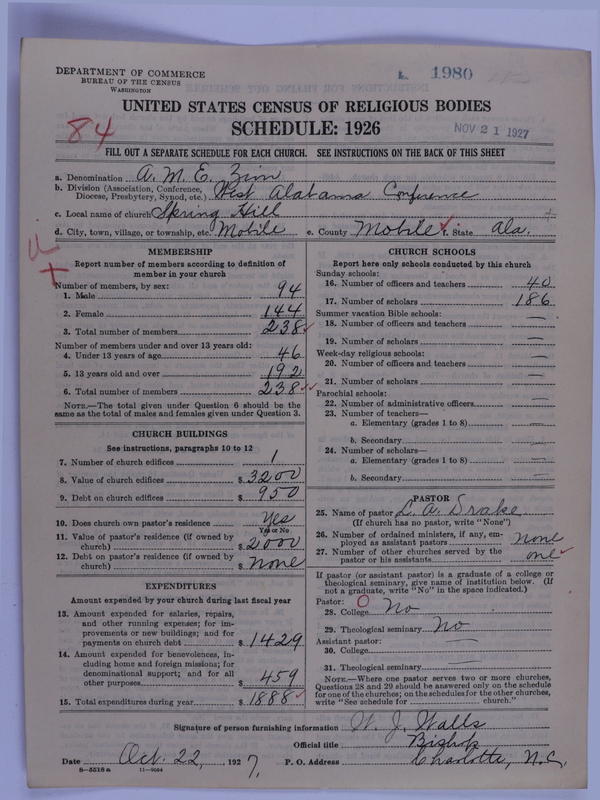 DEPARTMENT OF COMMERCE
BUREAU OF THE CENSUS
WASHINGTON
1980
UNITED STATES CENSUS OF RELIGIOUS BODIES
84
SCHEDULE: 1926
NOV 21 1927
FILL OUT A SEPARATE SCHEDULE FOR EACH CHURCH. SEE INSTRUCTIONS ON THE BACK OF THIS SHEET
a. Denomination A. M. E. Zion
b. Division (Association, Conference, Diocese, Presbytery, Synod, etc.) West Alabama Conference
c. Local name of church Spring Hill
d. City, town, village, or township, etc. Mobile e. County Mobile f. State Ala.
MEMBERSHIP
Report number of members according to definition of
member in your church
Number of members, by sex:
1. Male 94
2. Female 144
3. Total number of members 238
Number of members under and over 13 years old:
4. Under 13 years of age 46
5. 13 years old and over 192
6. Total number of members 238
NOTE.—The total given under Question 6 should be
same as the total of males and females given under Question 3.
CHURCH BUILDINGS
See instructions, paragraphs 10 to 12
7. Number of church edifices 1
8. Value of church edifices $ 3200
9. Debt on church edifices $ 950
10. Does church own pastor's residence Yes
Yes or No
11. Value of pastor's residence (if owned by
church) $ 2000
12. Debt on pastor's residence (if owned by
church) $ none
EXPENDITURES
Amount expended by your church during last fiscal year
13. Amount expended for salaries, repairs,
and other running expenses; for im-
provements or new buildings; and for
payments on church debt $ 1429
14. Amount expended for benevolences, in-
cluding home and foreign missions; for
denominational support; and for all
other purposes $ 459
15. Total expenditures during year $ 1888
CHURCH SCHOOLS
Report here only schools conducted by this church
Sunday schools:
16. Number of officers and teachers 40
17. Number of scholars 186
Summer vacation Bible schools:
18. Number of officers and teachers —
19. Number of scholars —
Week-day religious schools:
20. Number of officers and teachers —
21. Number of scholars —
Parochial schools:
22. Number of administrative officers —
23. Number of teachers—
a. Elementary (grades 1 to 8) —
b. Secondary —
24. Number of scholars—
a. Elementary (grades 1 to 8) —
b. Secondary —
PASTOR
25. Name of pastor L. A. Drake
(If church has no pastor, write "None")
26. Number of ordained ministers, if any, em-
ployed as assistant pastors none
27. Number of other churches served by the
pastor or his assistants one
If pastor (or assistant pastor) is a graduate of a college or
theological seminary, give name of institution below. (If
not a graduate, write "No" in the space indicated.)
Pastor:
28. College No
29. Theological seminary No
Assistant pastor:
30. College —
31. Theological seminary —
NOTE.—Where one pastor serves two or more churches,
Questions 28 and 29 should be answered only on the schedule
for one of the churches; on the schedules for the other churches,
write "See schedule for church."
Signature of person furnishing information W. J. Walls
Official title Bishop
Date Oct. 22, 1927. P. O. Address Charlotte, N.C.
8-5518a 11-9084